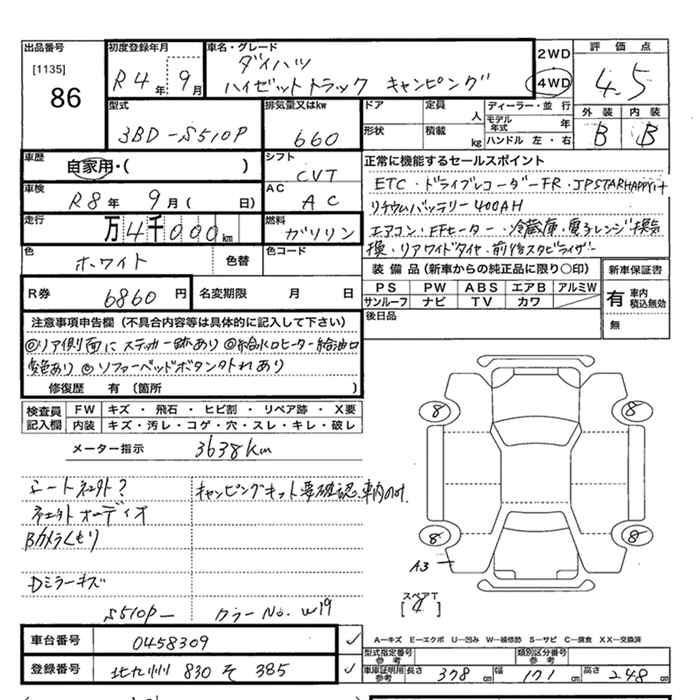 出品番号
[1135]
86
初度登録年月
R4年 9月
車名・グレード
ダイハツ
ハイゼットトラック キャンピング
2WD
4WD
評価点
4.5
外装 内装
B B
型式
3BD-S510P
排気量又はkw
660
ドア 定員 人
形状 積載 kg
ディーラー・並行
モデル年式 年
ハンドル 左・右
車歴
自家用・( )
シフト
CVT
車検
R8年 9月 ( 日)
AC
AC
走行
万4千000km
燃料
ガソリン
色
ホワイト 色替
色コード
R券 6860円
名変期限 月 日
正常に機能するセールスポイント
ETC・ドライブレコーダーFR・JPSTARHAPPYiナ
リチウムバッテリー400AH
エアコン・FFヒーター・冷蔵庫・電子レンジ・換気
扇・リアワイドタイヤ・前後スタビライザー
装備品(新車からの純正品に限り〇印)
PS PW ABS エアB アルミW
サンルーフ ナビ TV カワ
後日品
新車保証書
有 車内積込無効
無
注意事項申告欄(不具合内容等は具体的に記入して下さい)
◎リア側面にステッカー跡あり ◎給水口ヒーター給油口
変色あり ◎ソファーベッドボタン外れあり
修復歴 有(箇所 )
検査員記入欄
FW キズ・飛石・ヒビ割・リペア跡・X要
内装 キズ・汚レ・コゲ・穴・スレ・キレ・破レ
メーター指示 3638km
シートネェクト?
ネェクトオーディオ
Bカメラくもり
Dミラーキズ
キャンピングキット要確認、車内のみ.
S510P― カラーNo. W19
8 8
8 8
A3
スペアT
[4]
A―キズ E―エクボ U―凹み W―補修跡 S―サビ C―腐食 XX―交換済
車台番号 0458309 ✓
登録番号 北九州 830 そ 385 ✓
型式指定番号 参考
類別区分番号 参考
車庫証明用 参考 長さ 378cm 幅 171cm 高さ 248cm